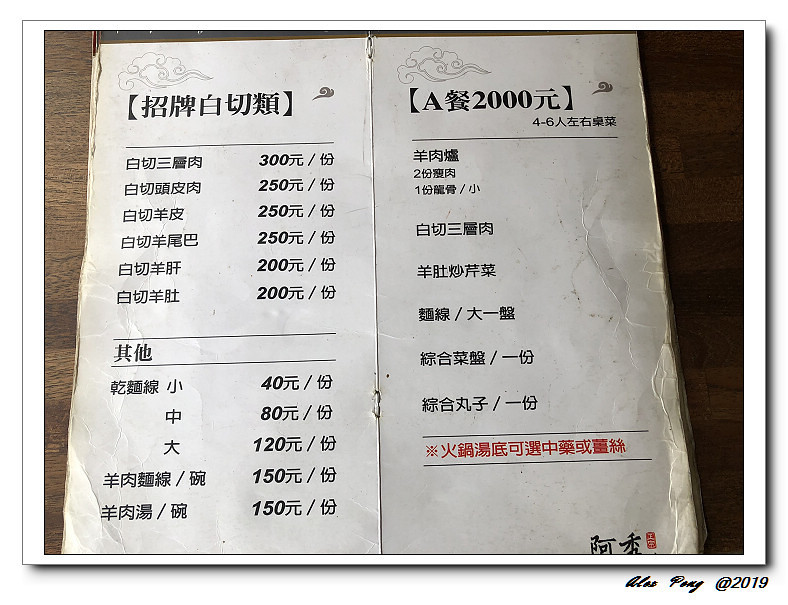 【招牌白切類】
白切三層肉 300元/份
白切頭皮肉 250元/份
白切羊皮 250元/份
白切羊尾巴 250元/份
白切羊肝 200元/份
白切羊肚 200元/份
其他
乾麵線 小 40元/份
中 80元/份
大 120元/份
羊肉麵線/碗 150元/份
羊肉湯/碗 150元/份
【A餐2000元】
4-6人左右桌菜
羊肉爐
2份瘦肉
1份龍骨/小
白切三層肉
羊肚炒芹菜
麵線/大一盤
綜合菜盤/一份
綜合丸子/一份
※火鍋湯底可選中藥或薑絲
阿秀
Alex Peng @2019